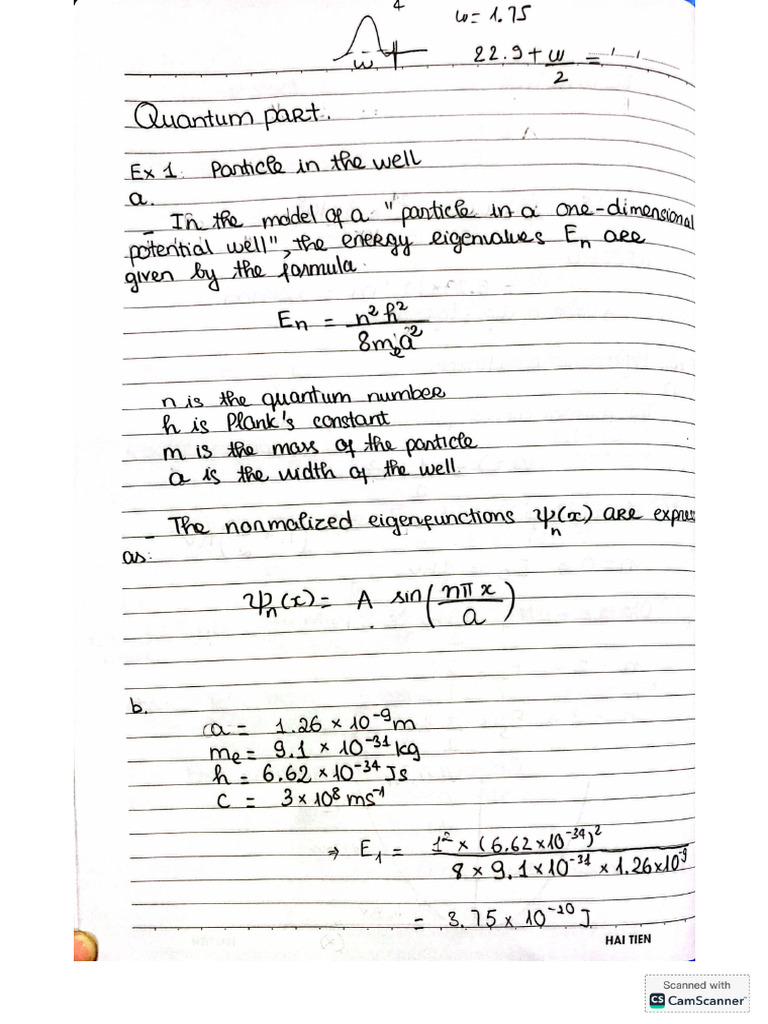 4
w = 1.75
w
22.9 + w/2 =
Quantum part.
Ex 1. Particle in the well
a.
_ In the model of a "particle in a one-dimensional
potential well", the energy eigenvalues En are
given by the formula.
En = n²h² / 8mea²
n is the quantum number
h is Plank's constant
m is the mass of the particle
a is the width of the well.
_ The normalized eigenfunctions ψn(x) are expres
as:
ψn(x) = A sin(nπx / a)
b.
a = 1.26 × 10⁻⁹ m
me = 9.1 × 10⁻³¹ kg
h = 6.62 × 10⁻³⁴ Js
c = 3 × 10⁸ ms⁻¹
⇒ E1 = 1² × (6.62 × 10⁻³⁴)² / 8 × 9.1 × 10⁻³¹ × 1.26 × 10⁻⁹
= 3.75 × 10⁻²⁰ J
HAI TIEN
Scanned with
CS CamScanner